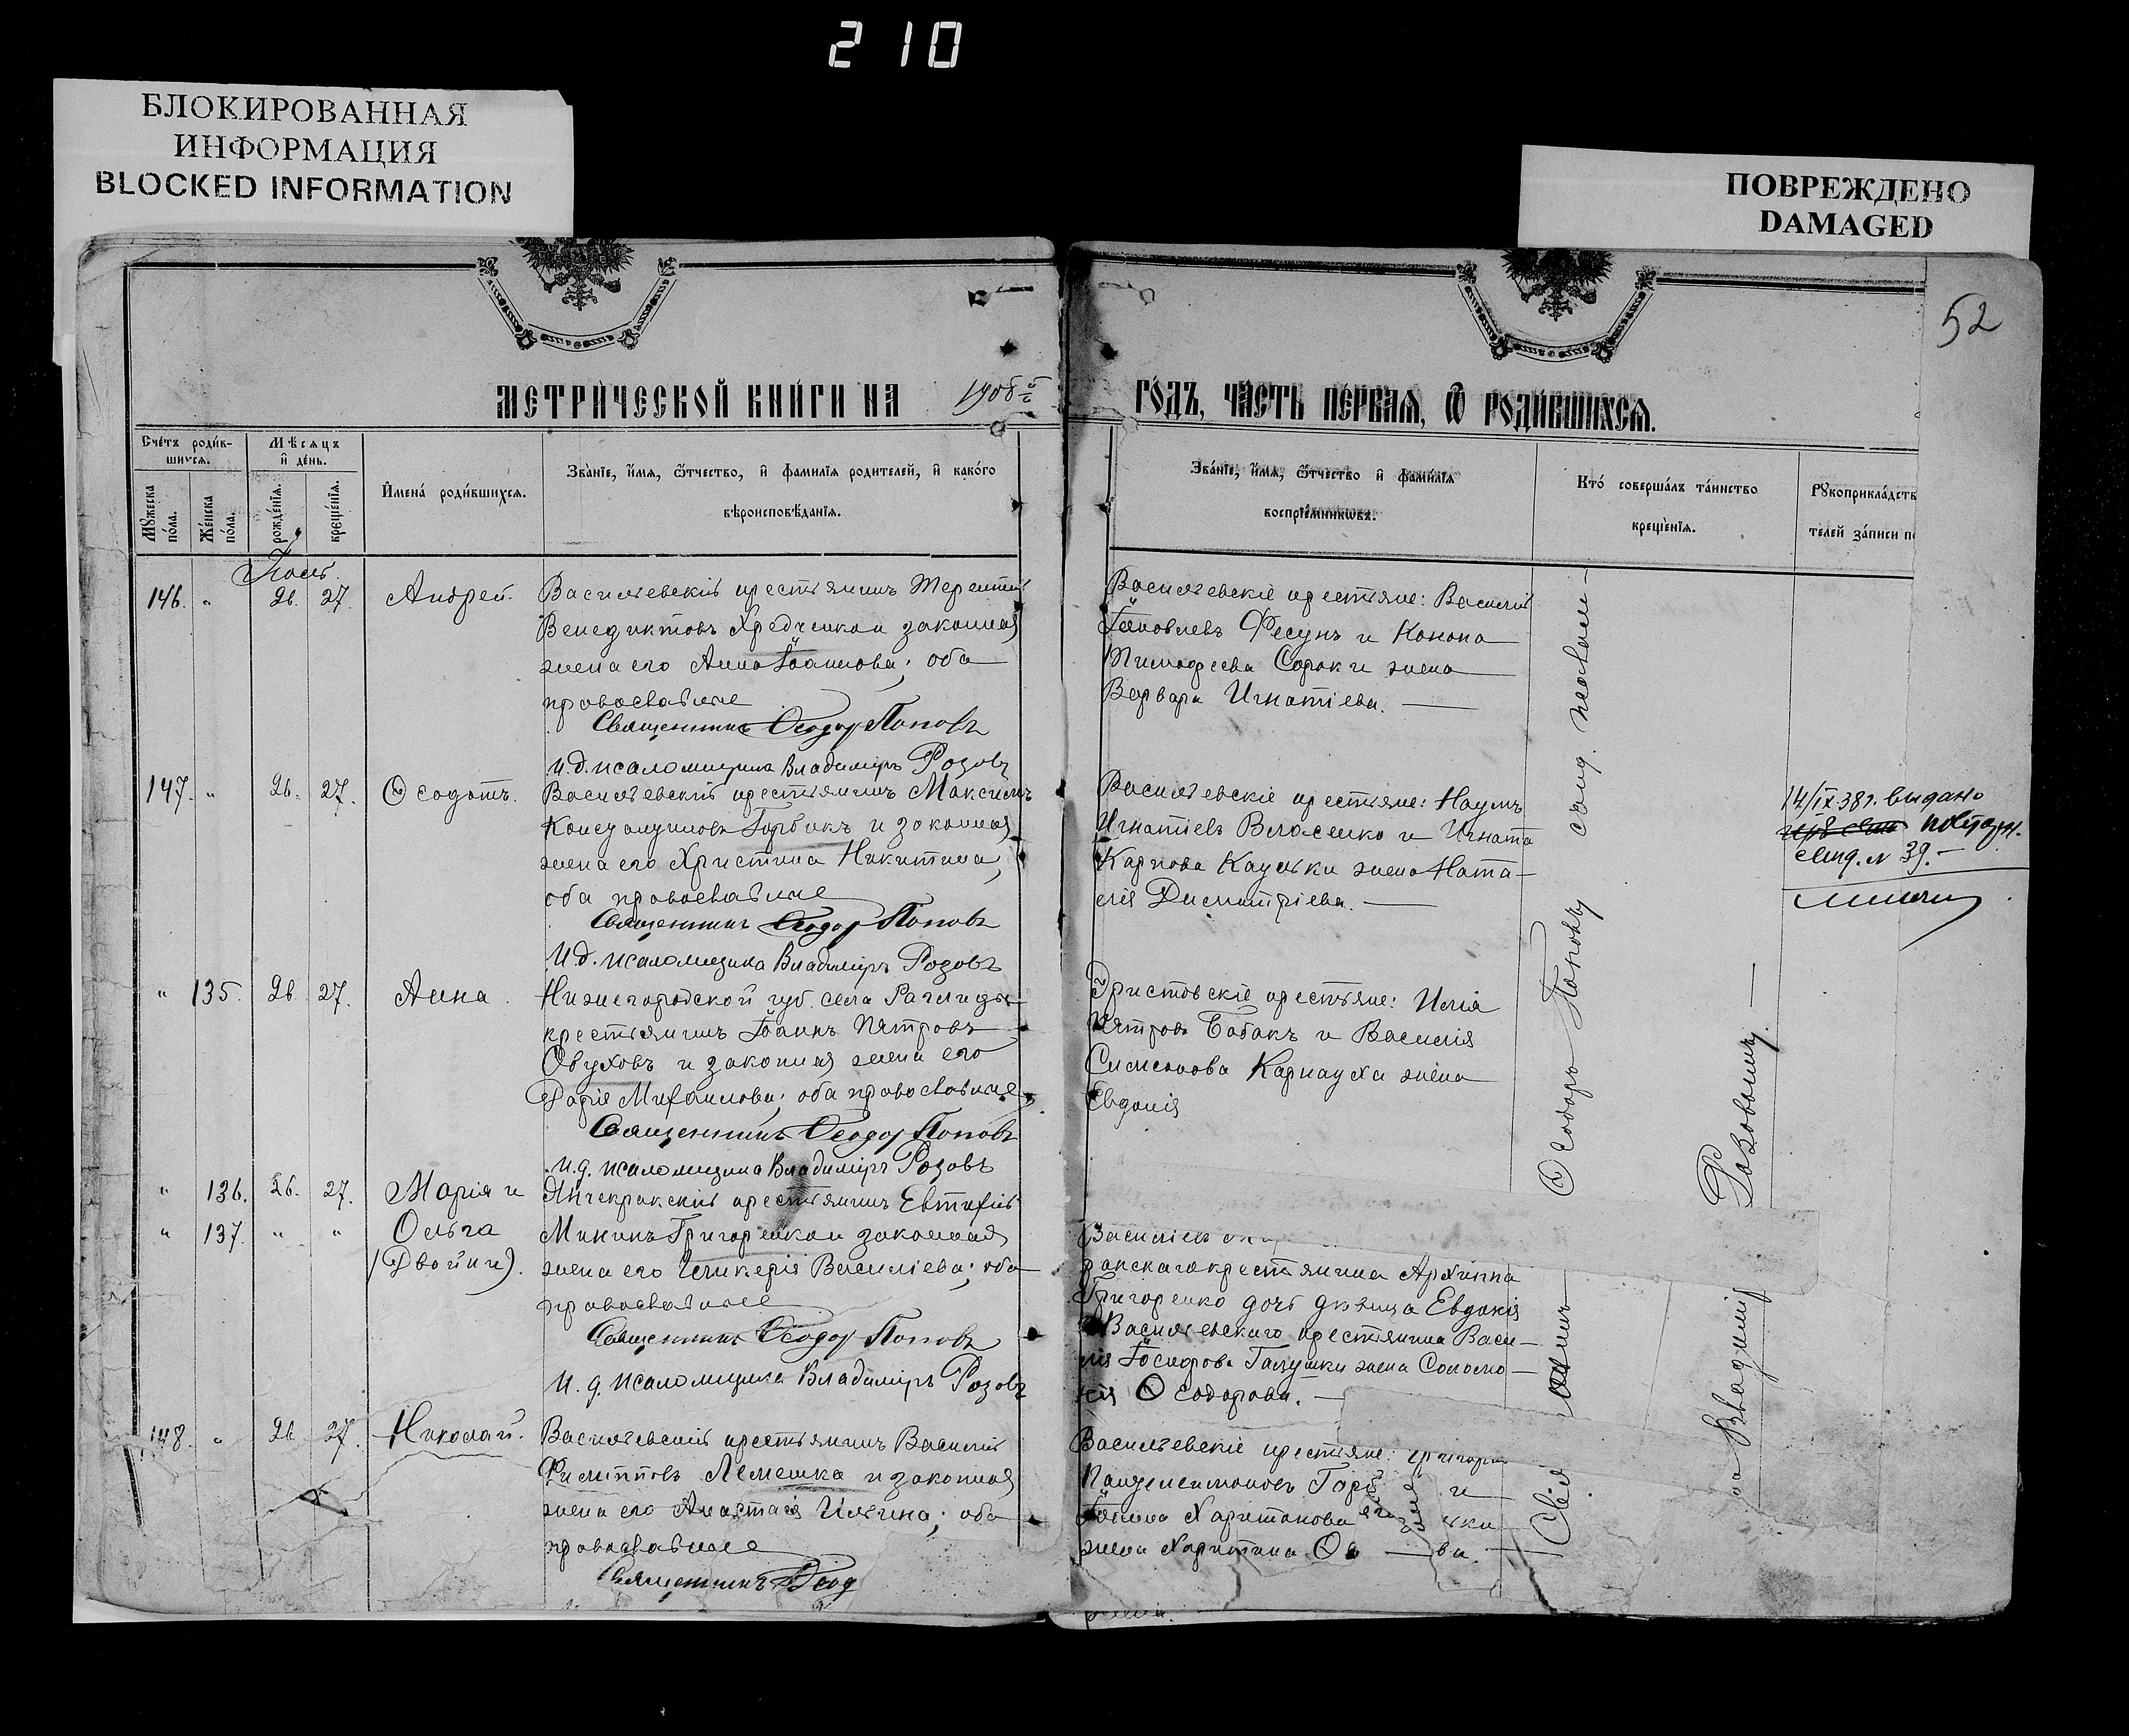 210
БЛОКИРОВАННАЯ
ИНФОРМАЦИЯ
BLOCKED INFORMATION
ПОВРЕЖДЕНО
DAMAGED
52
МЕТРИЧЕСКОЙ КНИГИ НА 1908й
ГОДЪ, ЧАСТЬ ПЕРВАЯ, Ѿ РОДИВШИХСЯ.
Счетъ родив-
шихся.
Мѣсяцъ
и день.
Мужеска
пола.
Женска
пола.
рожденія.
крещенія.
Имена родившихся.
Званіе, имя, ѿтчество, и фамилія родителей, и какого
вѣроисповѣданія.
Званіе, имя, ѿтчество и фамилія
воспріемниковъ.
Кто совершалъ таинство
крещенія.
Рукоприкладств
телей записи п
146. " 26. 27. Андрей.
Васильевскій крестьянинъ Терентій
Венедиктовъ и законная
жена его Анна Іоаннова; оба
православные
Священникъ Ѳеодоръ Поповъ
И.д. псаломщика Владиміръ Розовъ
Васильевскіе крестьяне: Василій
Іаковлевъ Фесунъ и Конона
Тимофеева Сороки жена
Варвара Игнатіева.
147. " 26. 27. Ѳеодотъ.
Васильевскій крестьянинъ Максимъ
Горбикъ и законная
жена его Христина Никитина,
оба православные
Священникъ Ѳеодоръ Поповъ
И.д. псаломщика Владиміръ Розовъ
Васильевскіе крестьяне: Наумъ
Игнатіевъ Власенко и Игната
Карпова жена Ната-
лія Димитріева.
14/IX.38г. выдано
повторн.
свид. № 39.
" 135. 26. 27. Анна.
Нижегородской губ. села
крестьянинъ Іоаннъ Пятровъ
Обуховъ и законная жена его
Дарія Михаилова; оба православные
Священникъ Ѳеодоръ Поповъ
И.д. псаломщика Владиміръ Розовъ
крестьяне: Илія
Пятровъ Бабакъ и Василія
Симеонова Карнауха жена
Евдокія
" 136. 26. 27. Марія и
" 137. " " Ольга
(Двойни).
Янчекракскій крестьянинъ Евтихій
Мининъ Григоренко и законная
жена его Гликерія Василіева; оба
православные
Священникъ Ѳеодоръ Поповъ
И.д. псаломщика Владиміръ Розовъ
крестьянина Архиппа
Григоренко дочь дѣвица Евдокія
и Васильевскаго крестьянина Васи-
лія Іосифова Галушки жена Соломо-
нія Ѳеодорова.
148. " 26. 27. Николай.
Васильевскій крестьянинъ Василій
Филипповъ Лемешка и законная
жена его Анастасія Ильина; оба
православные
Священникъ Ѳеод
Васильевскіе крестьяне: Григорій
Пантелеимоновъ Горб и
Іоанна Харитонова
жена Харитина
Ѳеодоръ Поповъ
Розовымъ.
Владимір